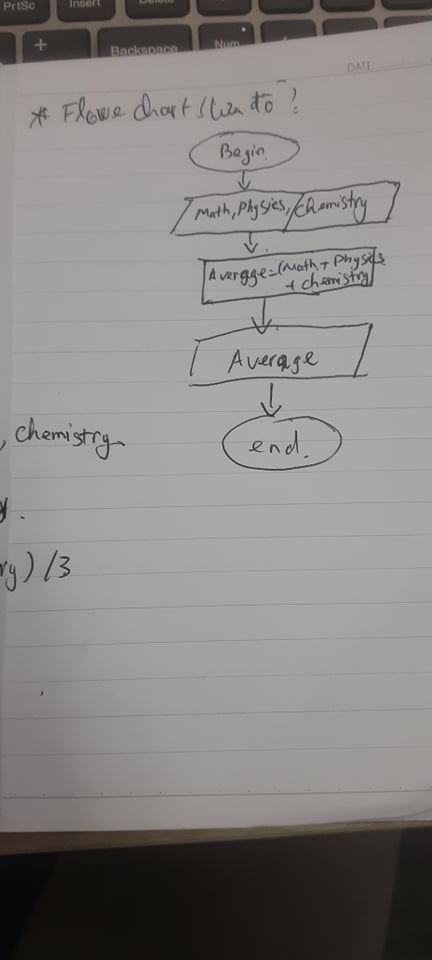 PrtSc
Insert
Delete
+
Backspace
Num
DATE:
* Flowe chart
Begin
Math, Physics, chemistry
Average=(Math + Physics
+ chemistry
Average
end.
, chemistry
y.
ry) /3